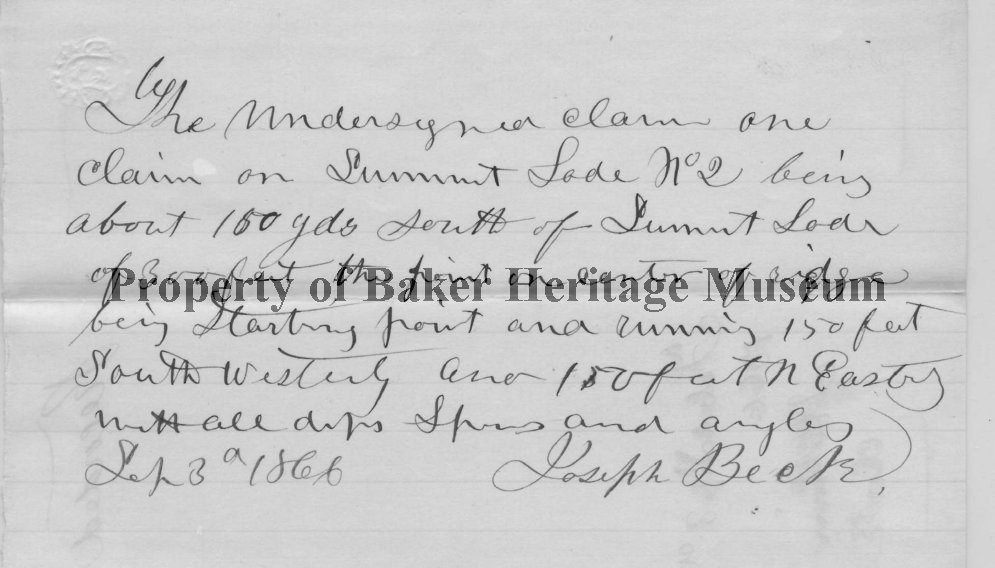 The Undersigned claim one
claim on Summit Lode No 2 being
about 150 yds south of Summit Lode
of 300 feet the point on center of ridge
Property of Baker Heritage Museum
being Starting point and running 150 feet
South Westerly and 150 feet N Easterly
with all dips Spurs and angles
Sep 3d 1866 Joseph Beck